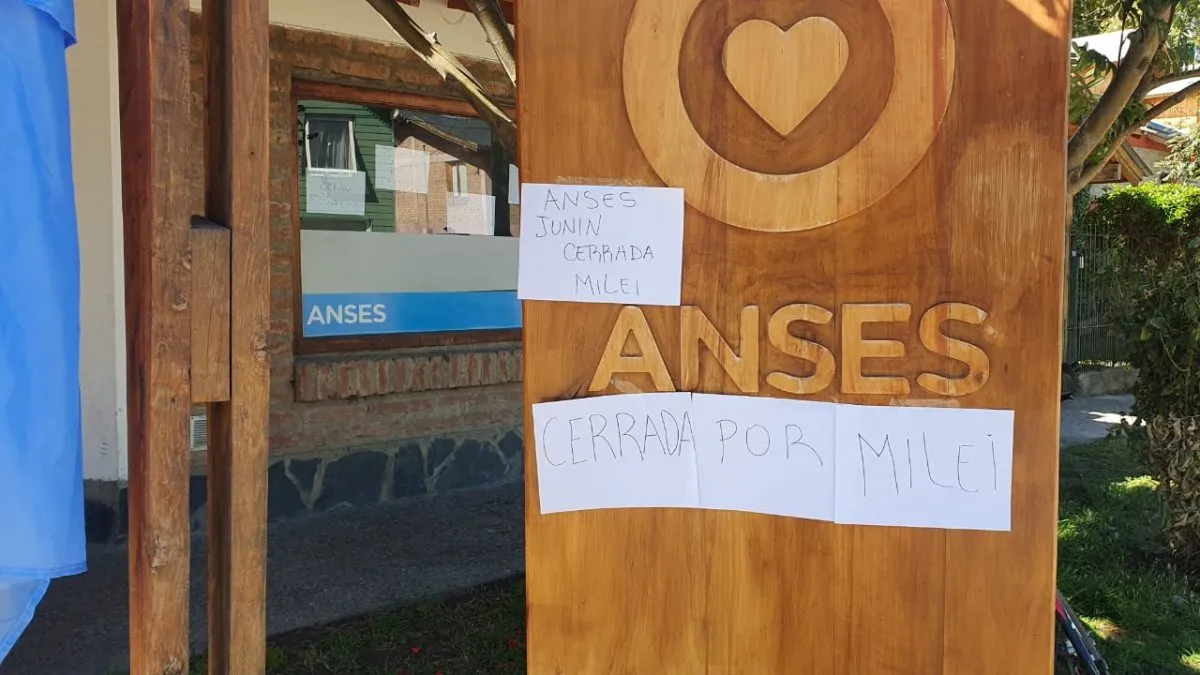 ANSES
JUNIN
CERRADA
MILEI
ANSES
ANSES
CERRADA POR MILEI